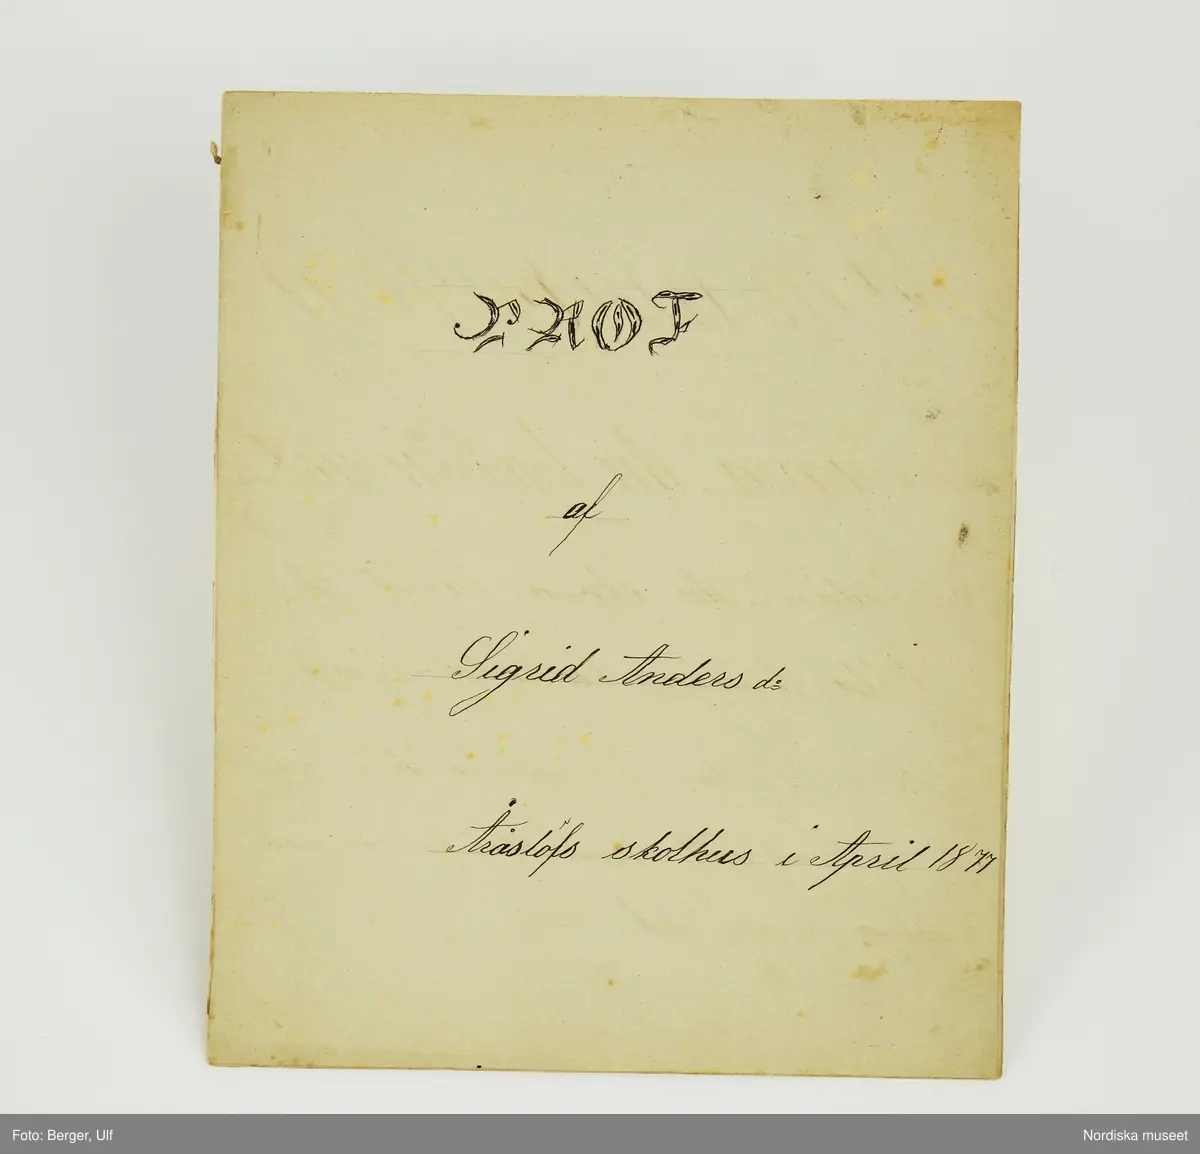 PROF
af
Sigrid Anders dr
Åraslöfs skolhus i April 1877
Foto: Berger, Ulf
Nordiska museet